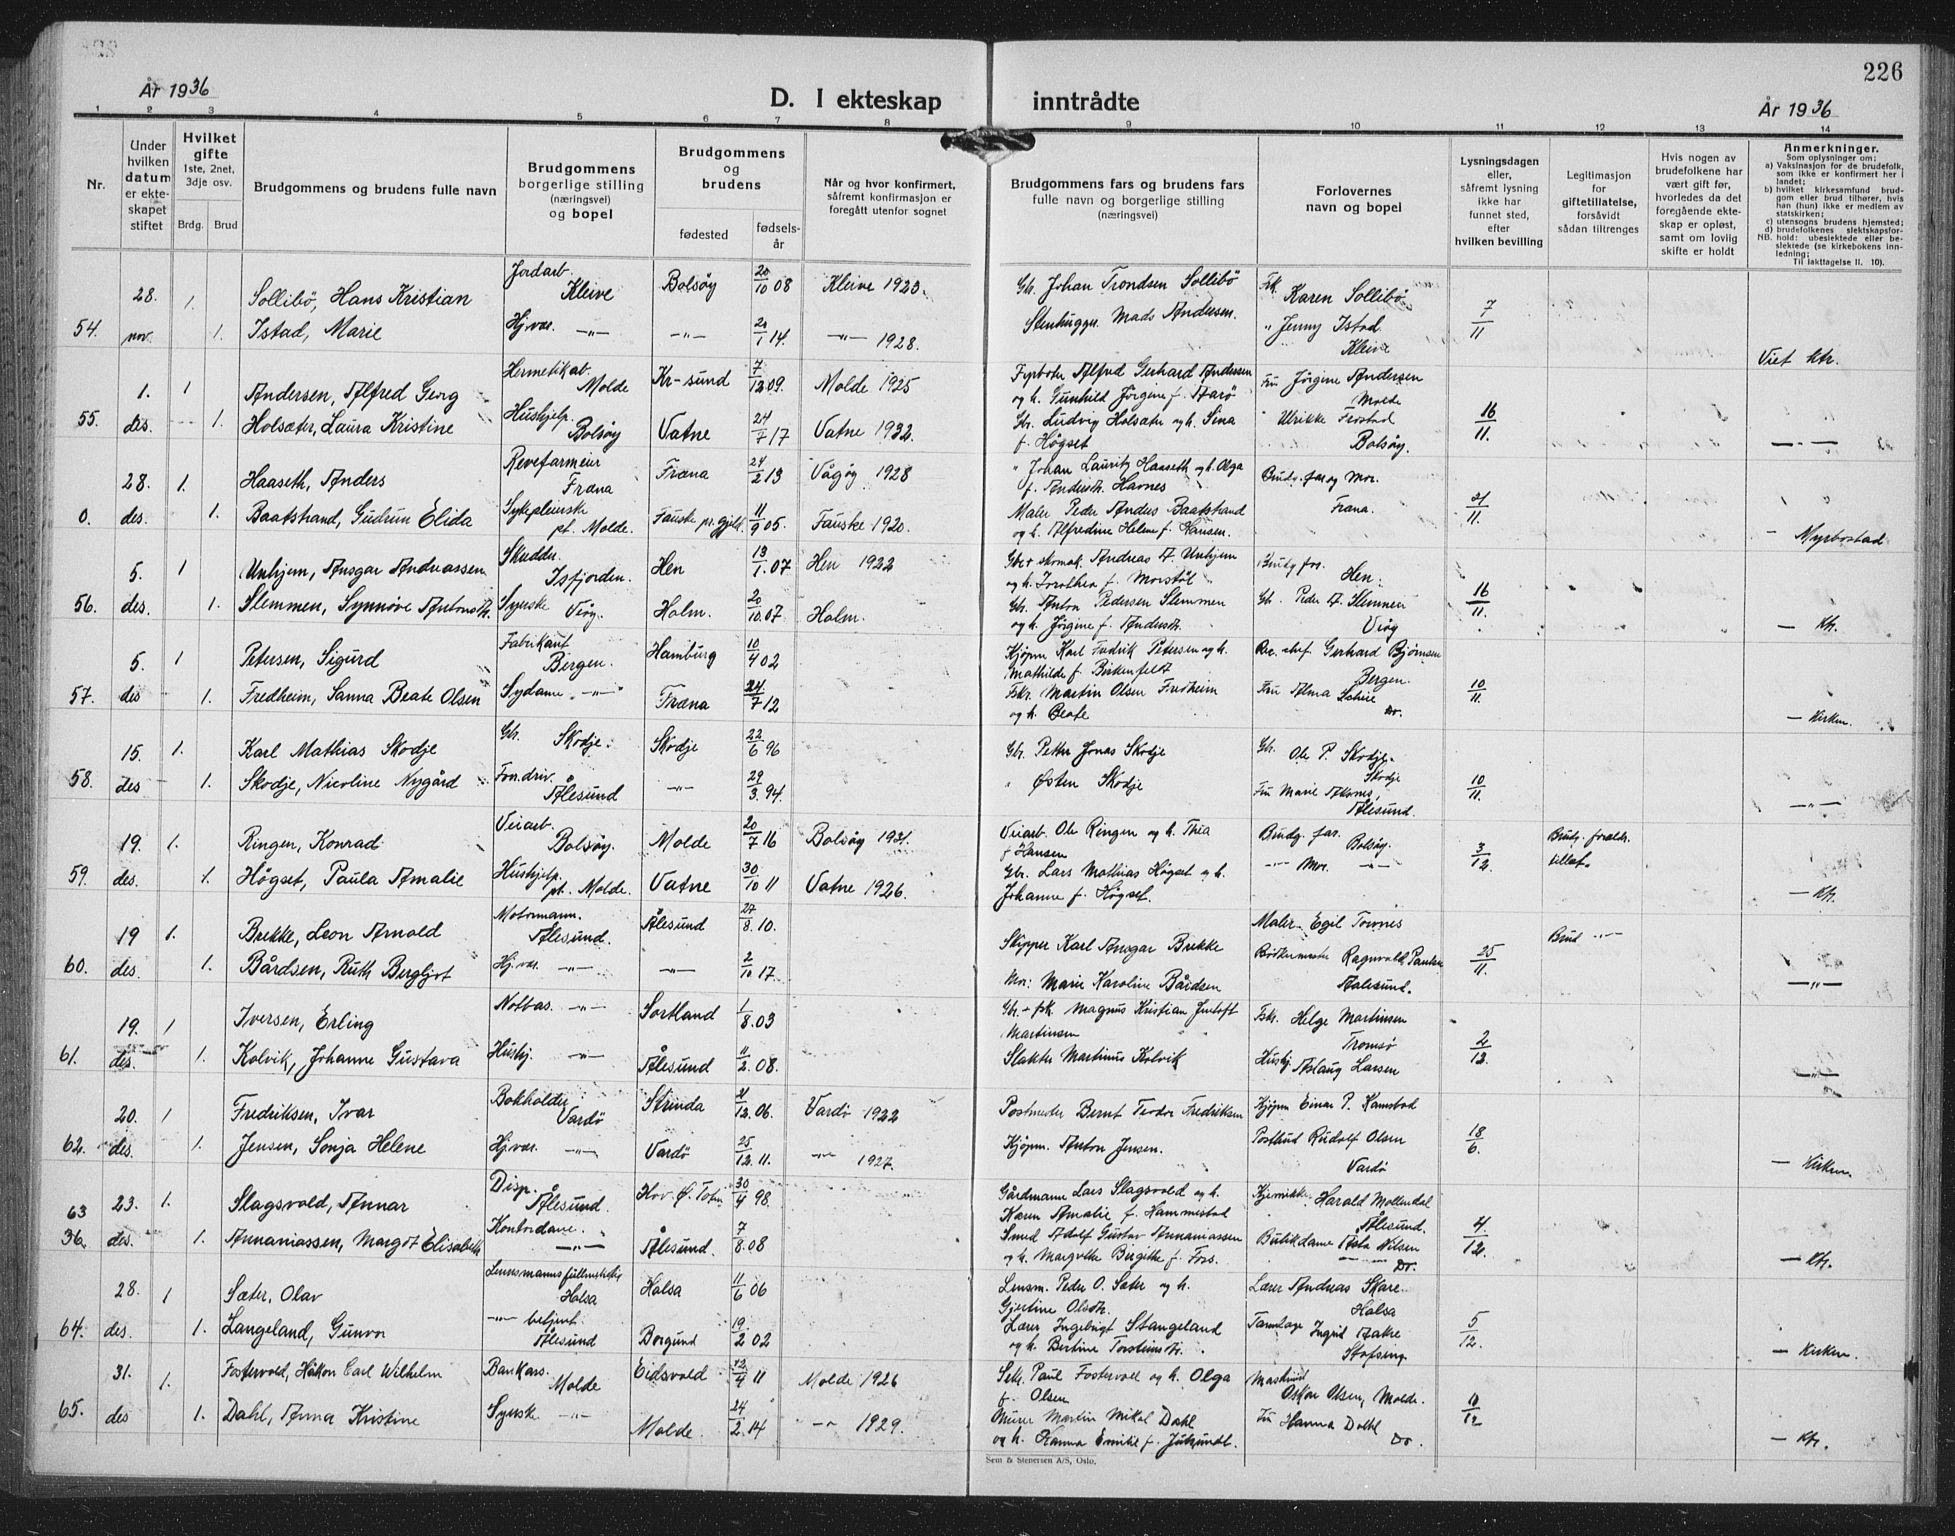 226
År 1936
D. I ekteskap inntrådte
År 1936
1 2 3 4 5 6 7 8 9 10 11 12 13 14
Nr.
Under hvilken datum er ekteskapet stiftet
Hvilket gifte
1ste, 2net, 3dje osv.
Brdg. Brud
Brudgommens og brudens fulle navn
Brudgommens borgerlige stilling (næringsvei) og bopel
Brudgommens og brudens
fødested
fødselsår
Når og hvor konfirmert, såfremt konfirmasjon er foregått utenfor sognet
Brudgommens fars og brudens fars fulle navn og borgerlige stilling (næringsvei)
Forlovernes navn og bopel
Lysningsdagen eller, såfremt lysning ikke har funnet sted, efter hvilken bevilling
Legitimasjon for giftetillatelse, forsåvidt sådan tiltrenges
Hvis nogen av brudefolkene har vært gift før, hvorledes da det foregående ekteskap er opløst, samt om lovlig skifte er holdt
Anmerkninger.
Som oplysninger om:
a) Vaksinasjon for de brudefolk, som ikke er konfirmert her i landet;
b) hvilket kirkesamfund brudgom eller brud tilhører, hvis han (hun) ikke er medlem av statskirken;
c) utensogns brudens hjemsted;
d) brudefolkenes slektskapsforhold: ubeslektede eller beslektede (se kirkebokens innledning;
NB. Til iakttagelse ll. 10).
28. 1. Sollibö, Hans Kristian Jordarb. Kleive Bolsöy 20/10 08 Kleive 1923. Gb. Johan Trondsen Sollibö Frk. Karen Sollibö
54. nov. 1. Istad, Marie Hj.vær. -"- -"- 20/1 14. -"- 1928. Stenhugger Mads Andersen. " Jenny Istad Kleive 7/11 Viet ktr.
1. 1 Andersen, Alfred Georg Hermetikarb. Molde Kr-sund 7/12 09. Molde 1925 Fyrbøter Alfred Gerhard Andersen og h. Gunhild Jörgine f. Aarö Fru Jörgine Andersen Molde
55. des. 1. Holsæter, Laura Kristine Hushjelp. Bolsöy Vatne 24/7 17 Vatne 1932. Gb. Ludvig Holsæter og h. Sina f. Högset " Ulrikke Frostad Bolsöy. 16/11. -"-
28. 1. Haaseth, Anders Revefarmeier Fræna Fræna 24/2 13 Vågöy 1928 " Johan Lauritz Haaseth og h. Olga f. Andersdt. Harnes Brudg. far og Mor. Fræna.
0. des. 1. Baatstrand, Gudrun Elida Sykepleierske pt. Molde. Fauske pr.gjeld 11/9 05. Fauske 1920. Maler Peder Andreas Baatstrand og h. Alfredine Helene f. Hansen. 21/11. - Myrbostad
5. 1 Unhjem, Ansgar Andreassen Skredder. Isfjorden. Hen 13/1. 07 Hen 1922 Gbr skomak. Andreas A. Unhjem og h. Dorothea f. Morstöl Brudg far. Hen.
56. des. 1. Slemmen, Synnöve Antonsdt. Syerske Veöy. Holm. 20/10. 07 Holm. Gb. Anton Pedersen Slemmen og h. Jörgine f. Andersdt. Gb. Peder A. Slemmen Veöy 16/11 - Ktr.
5. 1 Petersen, Sigurd Fabrikant Bergen. Hamburg 10/4 02 Kjöpm. Karl Fredrik Petersen og h. Mathilde f. Birkenfeldt Gerhard Björnsen Bergen.
57. des 1. Fredheim, Sanna Beate Olsen Sydame. -"- Fræna 24/7 12 Fskr. Martin Olsen Fredheim og h. Beate Fru Alma Do. 10/11. - Kirken.
15. 1. Karl Mathias Skodje Gb. Skodje. Skodje 22/6 96 Gbr. Petter Jonas Skodje Gb. Ole P. Skodje. Skodje
58. des 1. Skodje, Nicoline Nygård Forr.driv. Ålesund -"- 29/3. 94. " Østen Skodje Fru Marie Ålesund. 10/11. -"-
19. 1. Ringen, Konrad Veiarb. Bolsöy. Molde 20/7 16 Bolsöy 1931. Veiarb. Ole Ringen og h. Thia f Hansen Brudg. far. Bolsöy. Brudg. foreldr. tillat.
59. des. 1. Högset, Paula Amalie Hushjelp. pt. Molde. Vatne 30/10 11 Vatne 1926. Gbr. Lars Mathias Högset og h. Johanne f. Högset. -"- Mor. -"- 3/12. - Ktr.
19 1. Brekke, Leon Arnold Motormann. Ålesund. Ålesund 27/8. 10. Skipper Karl Ansgar Brekke Maler Egil Tornes Brud -"-
60. des. 1. Bårdsen, Ruth Bergljot Hj.vær. -"- -"- 2/10 17. Mor: Marie Karoline Bårdsen Bödkermester Ragnvald Paulsen Aalesund. 25/11. -"-
19. 1 Iversen, Erling Notbas. -"- Sortland 1/8. 03 Gb. + fsk. Magnus Kristian Jentoft Martinsen Fsk. Helge Martinsen Tromsö
61. des. 1. Kolvik, Johanne Gustava Hushj. -"- Ålesund 11/2. 08. Slakter Martinus Kolvik Hushj. Aslaug Larsen 2/12. -"-
20. 1 Fredriksen, Ivar Bokholder Vardö Strinda 21/12. 06. Vardö 1922 Postmester Bernt Teodor Fredriksen Kjöpm Einar P. Ramstad
62. des. 1. Jensen, Sonja Helene Hj.vær. -"- Vardö 25/12. 11. -"- 1927. Kjöpm. Anton Jensen. Postbud Rudolf Olsen Vardö 18/6. - Kirken
63 23. 1. Slagsvold, Annar Disp. Ålesund. Hov. Ø. Toten 30/4 98 Gårdmann Lars Slagsvold og h. Karen Amalie f. Hammestad Harald Mollendal Ålesund.
36. des. 1. Annaniassen, Margot Elisabeth Kontordame. -"- Ålesund. 7/8. 08 Smed Adolf Gustav Annaniassen og h. Margrethe Birgitte f. Fors. Butikdame Asta Nilsen Do. 4/12. - Ktr.
28. 1 Sæter, Olav Lensmannsfullmektig Halsa Halsa 11/6 06 Lensm. Peder O. Sæter og h. Gjertine Olsdt. Lærer Andreas Skare. Halsa
64. des. 1. Langeland, Gunvor -"- betjent. Ålesund Borgund 19/2 02 Lærer Ingebrigt Stangeland og h. Bertine Torsteinsdt. Tannlæge Ingrid Aakre 5/12. - Kirken.
31. 1. Fostervold, Håkon Carl Wilhelm Bankass. Molde Eidsvold 12/4 11 Molde 1926 Sekr. Paul Fostervold og h. Olga f. Olsen Maskinist Oskar Olsen, Molde.
65. des 1. Dahl, Anna Kristine Syerske -"- Molde. 24/2. 14 -"- 1929. Murer Martin Mikal Dahl og h. Hanna Emilie f. Fru Hanna Dahl Do. 11/12 - Ktr.
Sem & Stenersen A/S, Oslo.